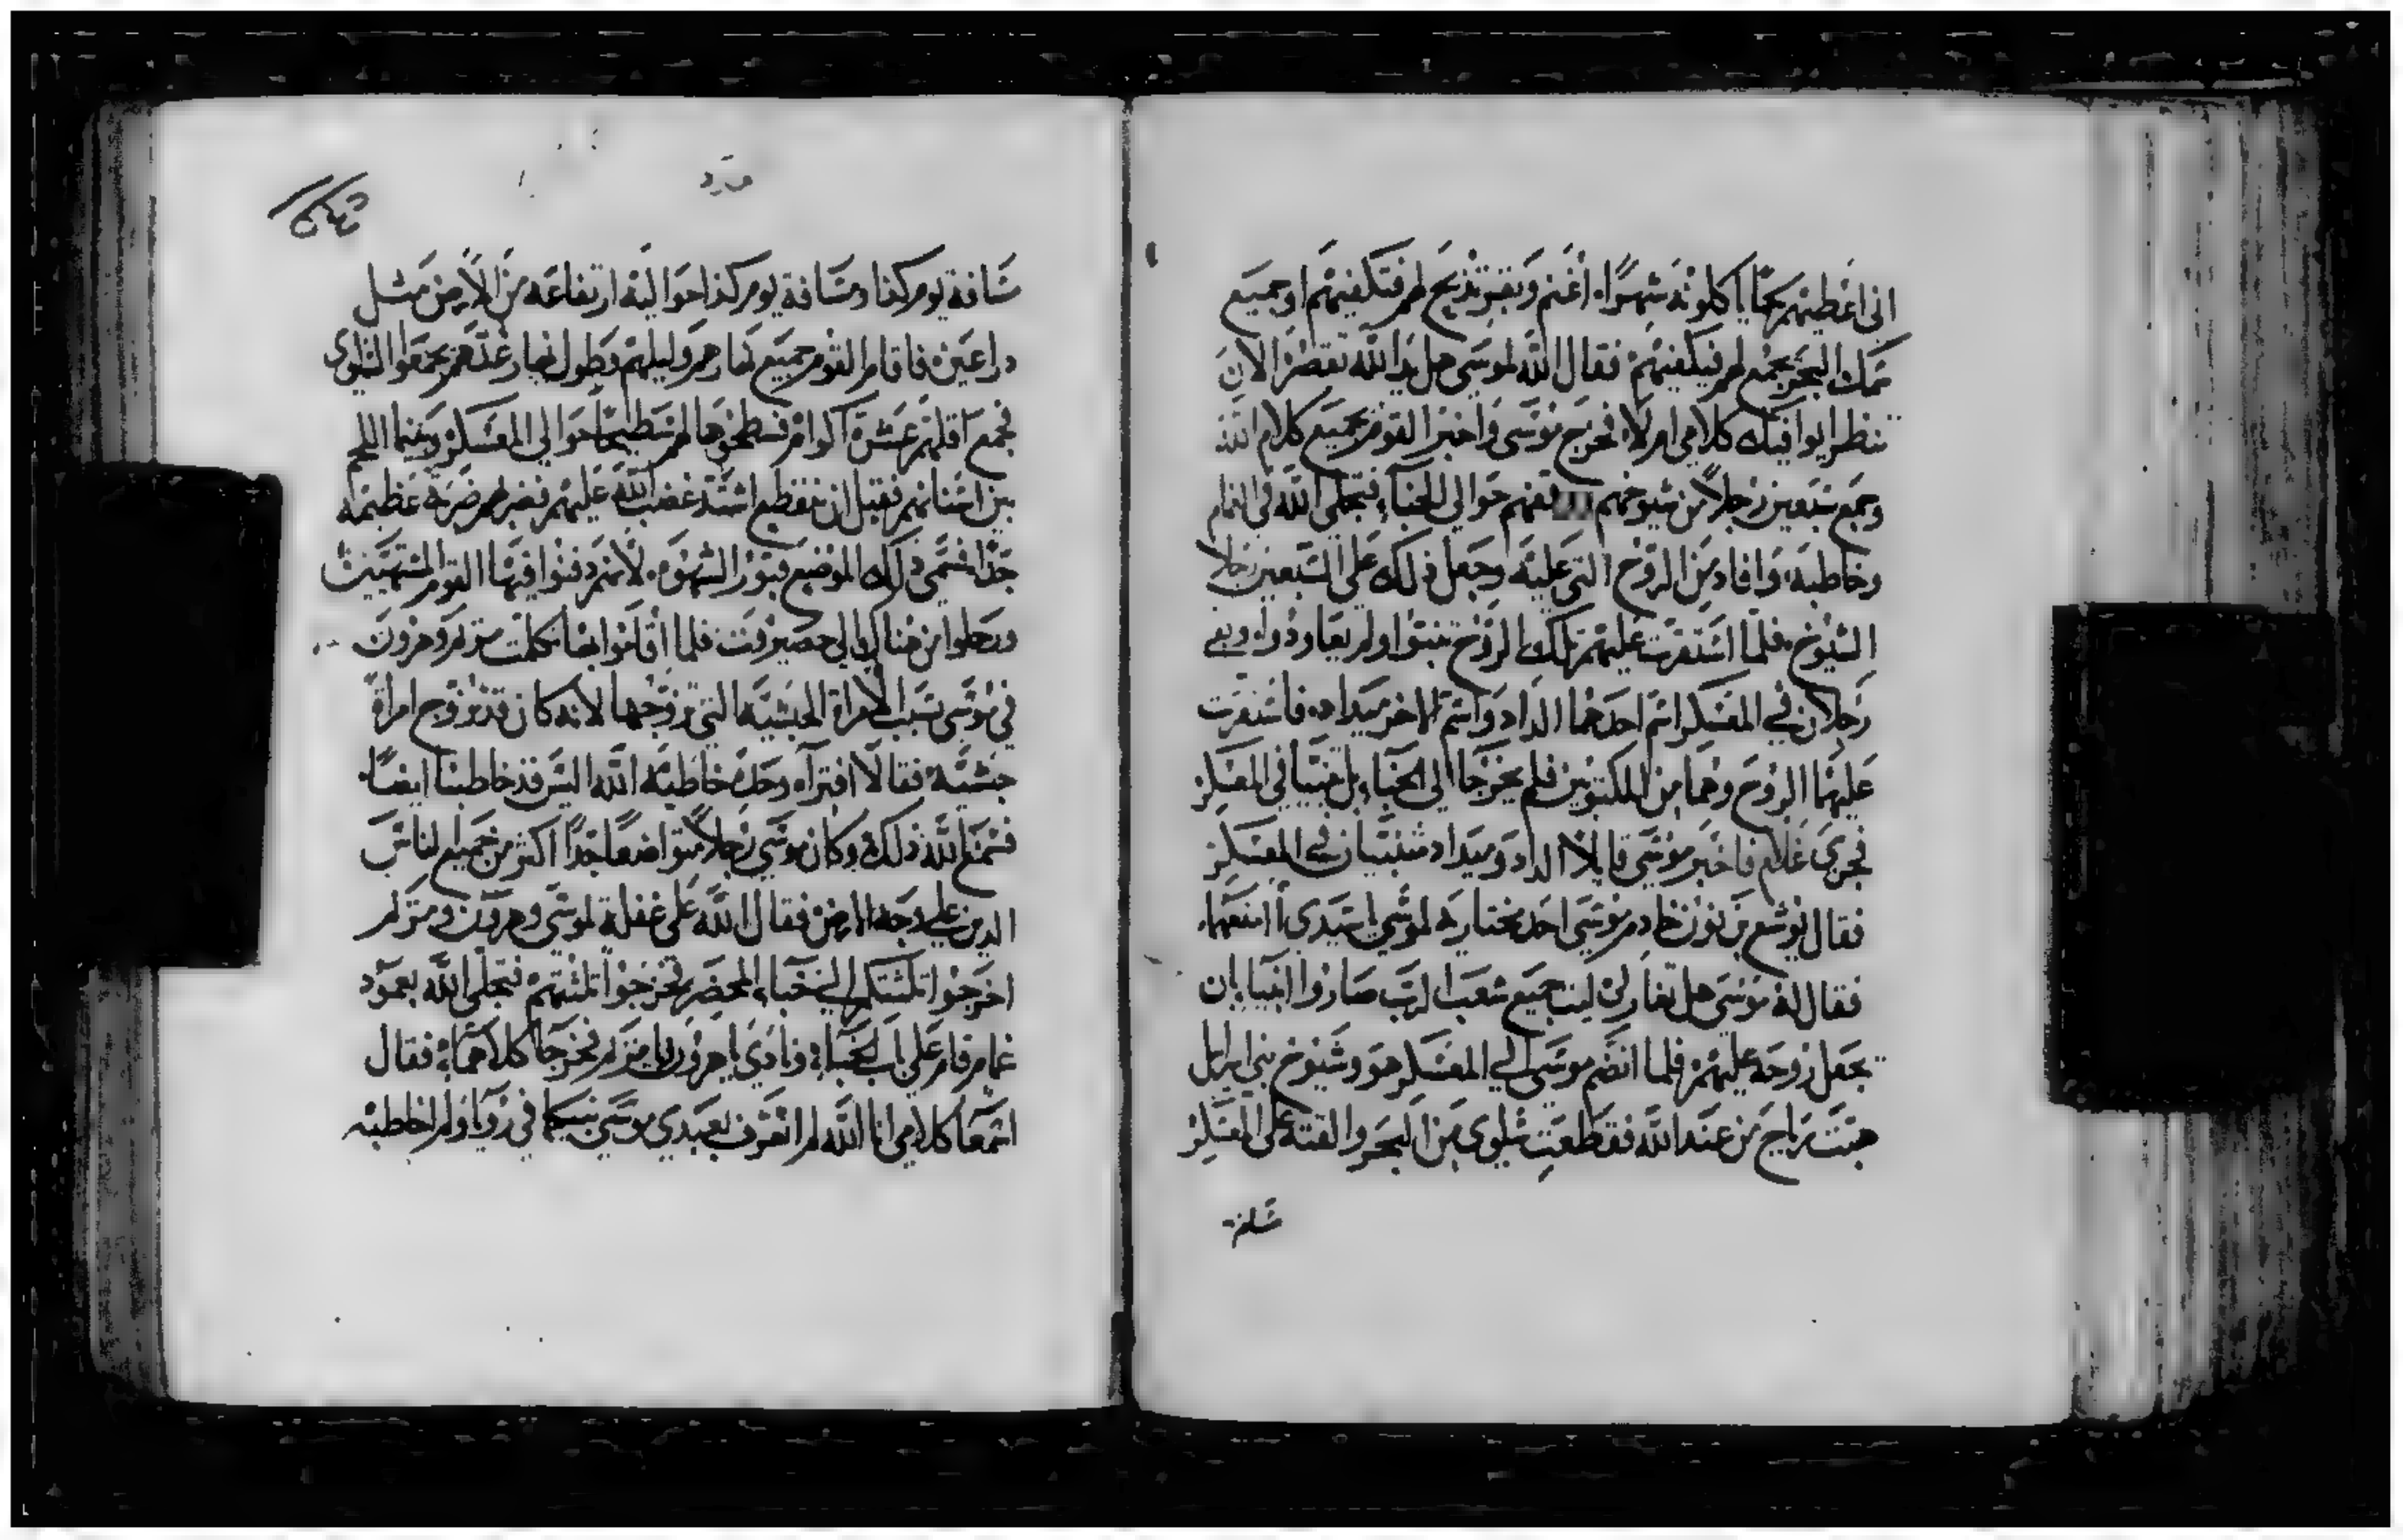 اني اعطيهم لحما ياكلونه شهرًا، أغنم وبقر تذبح لهم فتكفيهم او جميع
سمك البحر يجمع لهم فيكفيهم فقال الله لموسى هل يد الله تقصر الان
تنظر ايوافيك كلامي ام لا، فخرج موسى واخبر القوم بجميع كلام الله
وجمع سبعين رجلاً من شيوخهم حوالي الخباء، فتجلى الله في الغمام
وخاطبه، وافاد من الروح التي عليه وجعل ذلك على السبعين رجلا
الشيوخ، فلما استقرت عليهم تلك الروح تنبوا ولم يعاودوا، وبقي
رجلان في المعسكر اسم احدهما الداد واسم الاخر ميداد، فاستقرت
عليهما الروح وهما من المكتوبين فلم يخرجا الي الخباء بل تنبيا في المعسكر
فجرى غلام فاخبر موسى قايلا الداد وميداد متنبيان في المعسكر
فقال يوشع بن نون خادم موسى احد مختاريه لموسي يا سيدي امنعهما،
فقال له موسى هل تغار لي ليت جميع شعب الرب صاروا انبيا بان
يجعل روحه عليهم فلما انضم موسى الي المعسكر هو وشيوخ بني اسرايل
هبت رياح من عند الله فقطعت سلوى من البحر والقته على المعسكر
مسافة يوم كذا ومسافة يوم كذا حواليه ارتفاعه من الارض مثل
دراعين فاقام القوم جميع نهارهم وليلهم وطول نهار غدهم يجمعوا السلوى
فجمع اقلهم عشرة اكوام فسطحوها لهم سطيحًا حوالي المعسكر وبينما اللحم
بين اسنانهم فقبل ان ينقطع اشتد غضب الله عليهم فضربهم ضربة عظيمة
جدا فسمى ذلك الموضع قبور الشهوة، لانهم دفنوا فيها القوم المشتهيين
ورحلوا من هناك الي حصيروت فلما اقاموا بها تكلمت مريم وهرون
في موسى بسبب الامراة الحبشية التي تزوجها لانه كان قد تزوج امراة
حبشية، فقالا افتراه وحده خاطبه الله اليس قد خاطبنا ايضا،
فسمع الله ذلك، وكان موسى رجلاً متواضعًا جدًا اكثر من جميع الناس
الدين علي وجه الارض فقال الله على غفلة لموسى وهرون ومريم
اخرجوا ثلثتكم الي خباء المحضر فخرجوا ثلثتهم فتجلى الله بعمود
غمام قام على باب الخباء، ونادى يا هرون يا مريم فخرجا كلاهما، فقال
اسمعا كلامي انا الله لم اتعرف بعبدي موسى نبيكما في رؤيا ولم اخاطبه